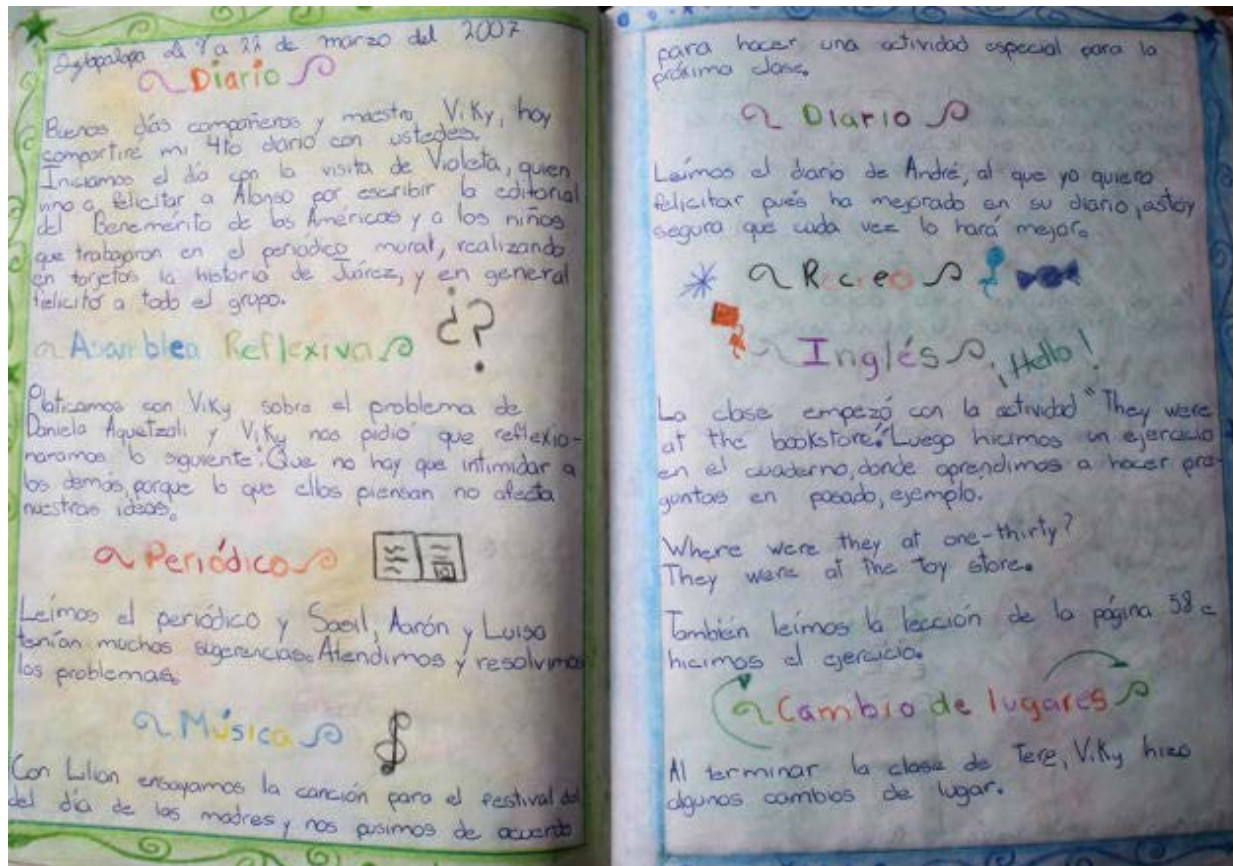 Iztapalapa D.F a 22 de marzo del 2007
Diario
Buenos días compañeros y maestra Viky, hoy
compartiré mi 4to diario con ustedes.
Iniciamos el día con la visita de Violeta, quien
vino a felicitar a Alonso por escribir la editorial
del Benemérito de las Américas y a los niños
que trabajaron en el periodico mural, realizando
en tarjetas la historia de Juárez, y en general
felicitó a todo el grupo.
Asamblea Reflexiva ¿?
Platicamos con Viky sobre el problema de
Daniela Aquetzali y Viky nos pidió que reflexio-
naramos lo siguiente: Que no hay que intimidar a
los demás, porque lo que ellos piensan no afecta
nuestras ideas.
Periódico
Leímos el periódico y Sacil, Aarón y Luisa
tenían muchas sugerencias. Atendimos y resolvimos
los problemas.
Música
Con Lilian ensayamos la canción para el festival del
del día de las madres y nos pusimos de acuerdo
para hacer una actividad especial para la
próxima clase.
Diario
Leímos el diario de André, al que yo quiero
felicitar pués ha mejorado en su diario, estoy
segura que cada vez lo hará mejor.
Recreo
Inglés ¡Hello!
La clase empezó con la actividad "They were
at the bookstore." Luego hicimos un ejercicio
en el cuaderno, donde aprendimos a hacer pre-
guntas en pasado, ejemplo.
Where were they at one-thirty?
They were at the toy store.
También leímos la lección de la página 58 e
hicimos el ejercicio.
Cambio de lugares
Al terminar la clase de Tere, Viky hizo
algunos cambios de lugar.